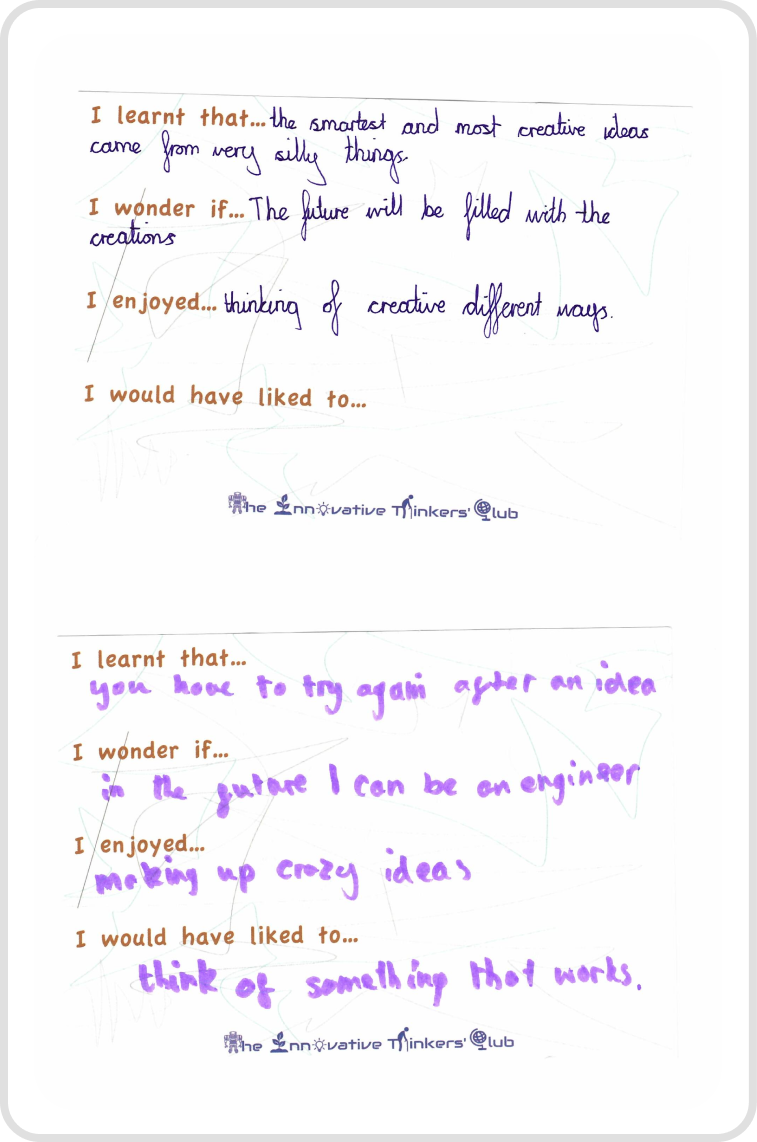 I learnt that... the smartest and most creative ideas
came from very silly things.
I wonder if... The future will be filled with the
creations
I enjoyed... thinking of creative different ways.
I would have liked to...
The Innovative Thinkers' Club
I learnt that...
you have to try again after an idea
I wonder if...
in the future I can be an engineer
I enjoyed...
making up crazy ideas
I would have liked to...
think of something that works.
The Innovative Thinkers' Club